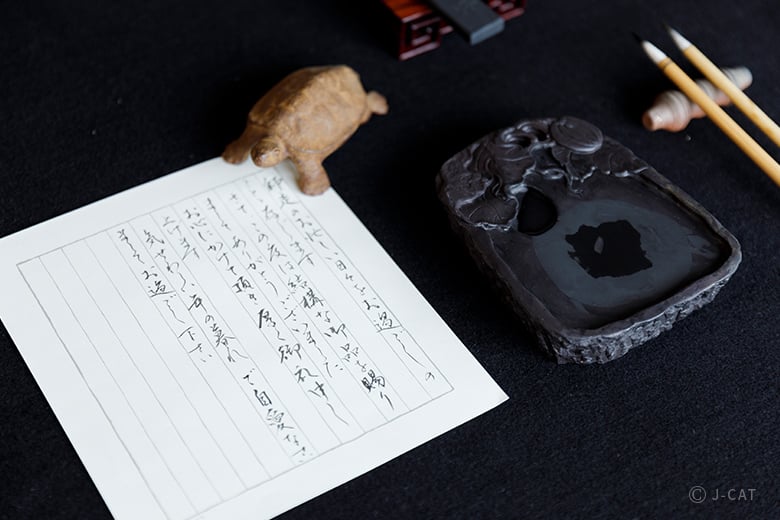 師走のお忙しい日々をお過ごしの
ことと存じます
さて この度は結構な御品を賜り
まして ありがとうございました
お心にかけて頂き 厚く御礼申し
上げます
気ぜわしい年の暮れ ご自愛なさい
ましてお過ごし下さい
© J-CAT